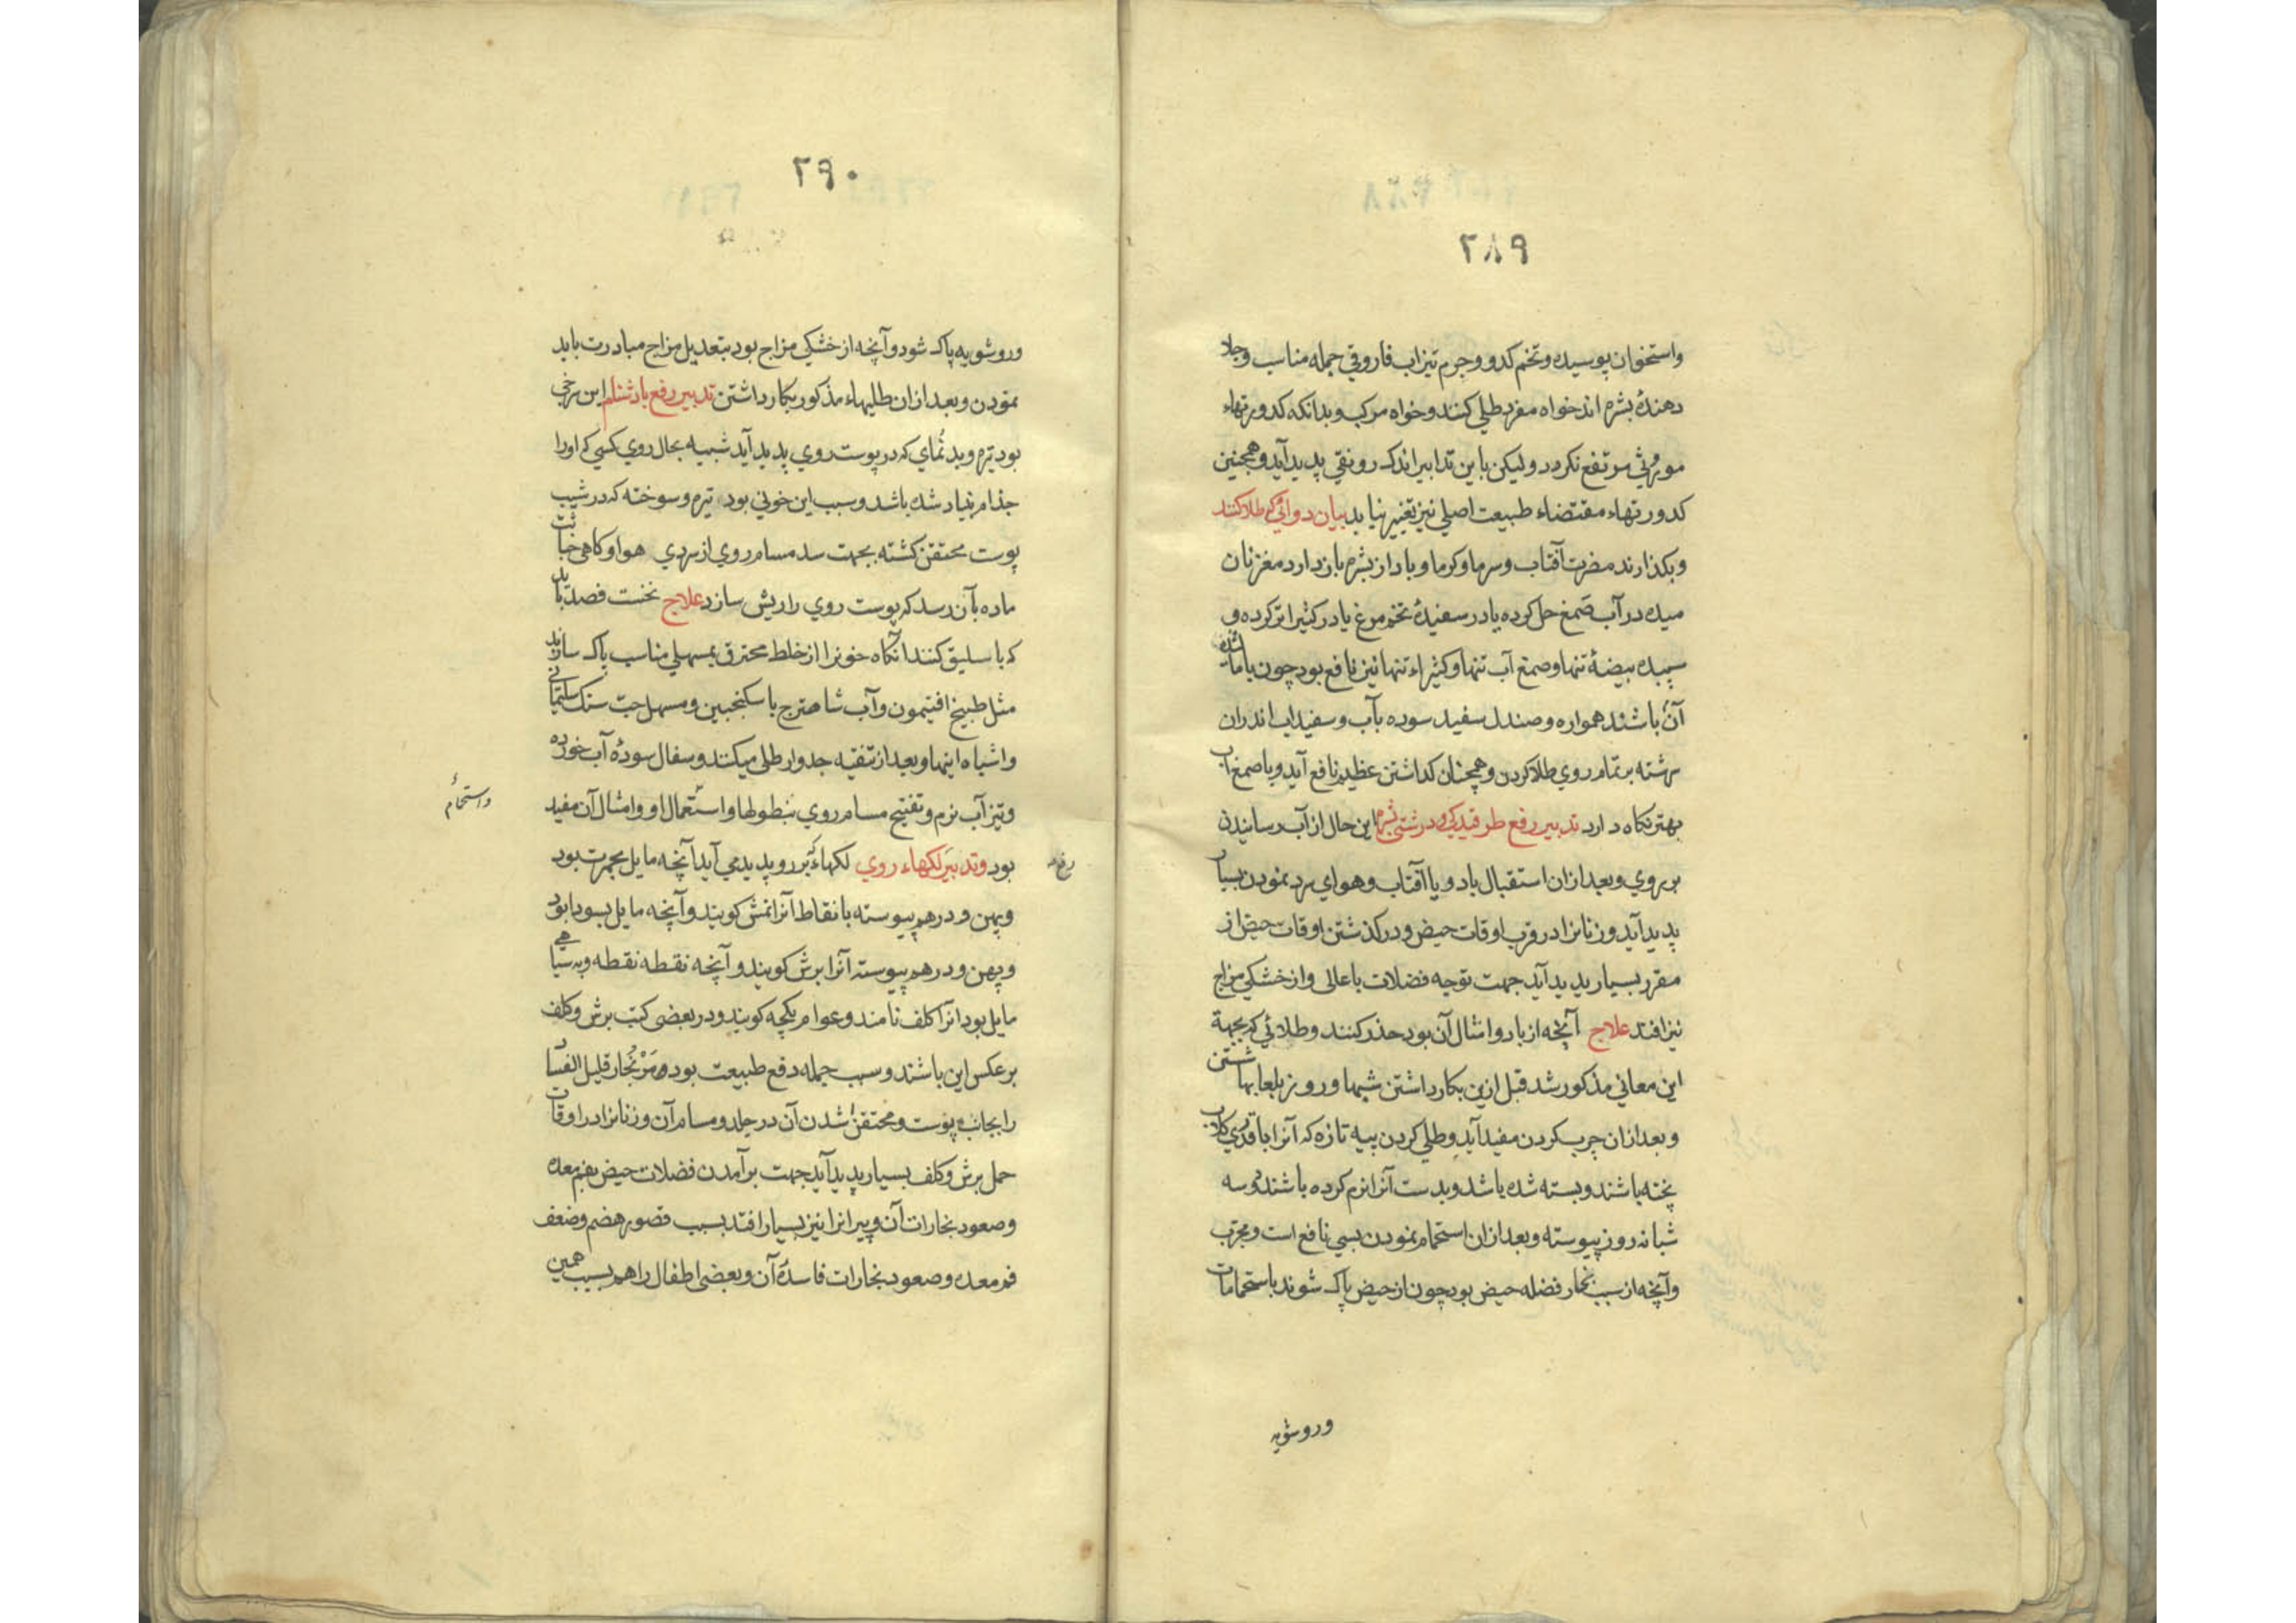 ۲۸۹
واستخوان پوسیده وتخم کدو وجرم تیزاب فاروقی جمله مناسب وجلا
دهندهٔ بشره اند خواه مفرد طلی کنند وخواه مرکب وبدانکه کدورتهاء
موروثی مرتفع نکردد ولیکن باین تدابیر اندک رونقی پدید آید وهمچنین
کدورتهاء مقتضاء طبیعت اصلی نیز تغییر نیابد بیان دوائی که طلا کنند
وبکذارند مضرت آفتاب وسرما وکرما وباد از بشره باز دارد مغز نان
میده در آب صمغ حل کرده یا در سفیدهٔ تخم مرغ یا در کثیرا تر کرده و
سپیده بیضهٔ تنها وصمغ آب تنها وکثیراء تنها نیز نافع بود چون با ماشه
آن باشند همواره وصندل سفید سوده بآب وسفیداب اندران
سرشته بر تمام روی طلا کردن وهمچنان کداشتن عظیم نافع آید وبا صمغ آب
بهتر نکاه دارد تدبیر رفع طرقیدکی ودرشتی بشره این حال از آب رسانیدن
بر روی وبعد از ان استقبال باد ویا آفتاب وهوای سرد نمودن بسیار
پدید آید وزنانرا در قرب اوقات حیض ودر کذشتن اوقات حیض از
مقرر بسیار پدید آید جهت توجه فضلات باعالی واز خشکی مزاج
نیز افتد علاج آنچه از باد وامثال آن بود حذر کنند وطلائی که بجهة
این معانی مذکور شد قبل ازین بکار داشتن شبها وروز بلعابها شستن
وبعد از ان چرب کردن مفید آید وطلی کردن پیه تازه که آنرا با قدری کلاب
پخته باشند وبسته شده باشد وبدست آنرا نرم کرده باشند دو سه
شبانه روز پیوسته وبعد از ان استحمام نمودن بسی نافع است ومجرب
وآنچه از سبب بخار فضله حیض بود چون از حیض پاک شوند باستحمامات
وروشویه
۲۹۰
وروشویه پاک شود وآنچه از خشکی مزاج بود بتعدیل مزاج مبادرت باید
نمودن وبعد از ان طلیهاء مذکور بکار داشتن تدبیر رفع بادشنام این سرخی
بود تیره وبد نمای که در پوست روی پدید آید شبیه بحال روی کسی که اورا
جذام بنیاد شده باشد وسبب این خونی بود تیره وسوخته که در شیب
پوست محتقن کشته بجهت سد مسام روی از سردی هوا وکاهی خباثت
ماده بآن رسد که پوست روی را ریش سازد علاج نخست فصد باید
که باسلیق کنند آنکاه خونرا از خلط محترق بمسهلی مناسب پاک سازند
مثل طبیخ افتیمون وآب شاهترج با سکنجبین ومسهل حب سنک سلیمانی
واشباه اینها وبعد از تنقیه جدوار طلی میکند وسفال سودهٔ آب خورده
وتیز آب نرم وتفتیح مسام روی بنطولها واستعمال او وامثال آن مفید
واستحمام
بود وتدبیر لکهاء روی لکهاء که بر رو پدید می آید آنچه مایل بحمرت بود
رفع
وپهن ودر هم پیوسته با نقاط آنرا نمش کویند وآنچه مایل بسواد بود
وپهن ودر هم پیوسته آنرا برش کویند وآنچه نقطه نقطه وبه سیاهی
مایل بود آنرا کلف نامند وعوام یکچه کویند ودر بعضی کتب برش وکلف
بر عکس این باشند وسبب جمله دفع طبیعت بود مر بخار قلیل الفساد
را بجانب پوست ومحتقن شدن آن در جلد ومسام آن وزنانرا در اوقات
حمل برش وکلف بسیار پدید آید جهت برآمدن فضلات حیض بفم معده
وصعود بخارات آن وپیرانرا نیز بسیار افتد بسبب قصور هضم وضعف
فم معده وصعود بخارات فاسدهٔ آن وبعضی اطفال را هم بسبب همین